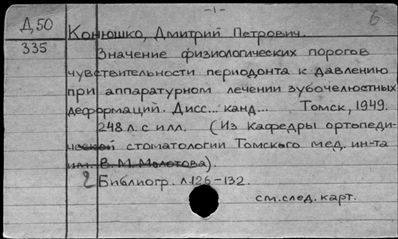 -1-
6
Д 50
335
Конюшко, Дмитрий Петрович.
Значение физиологических порогов
чувствительности периодонта к давлению
при аппаратурном лечении зубочелюстных
деформаций. Дисс... канд... Томск, 1949.
248 л. с илл. (Из Кафедры ортопеди-
ческой стоматологии Томского мед. ин-та
им. В. М. Молотова).
2 Библиогр. л. 126-132.
см. след. карт.